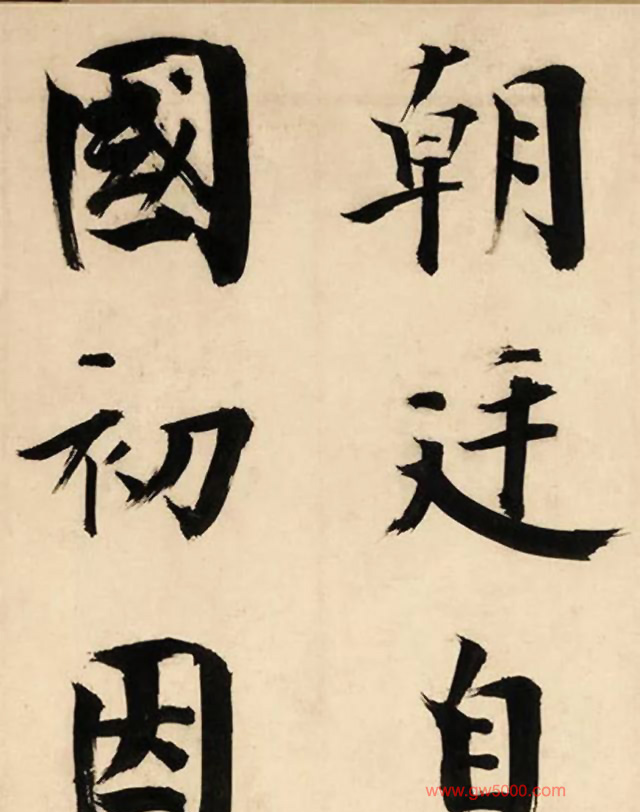 朝廷自
國初因
www.gw5000.com